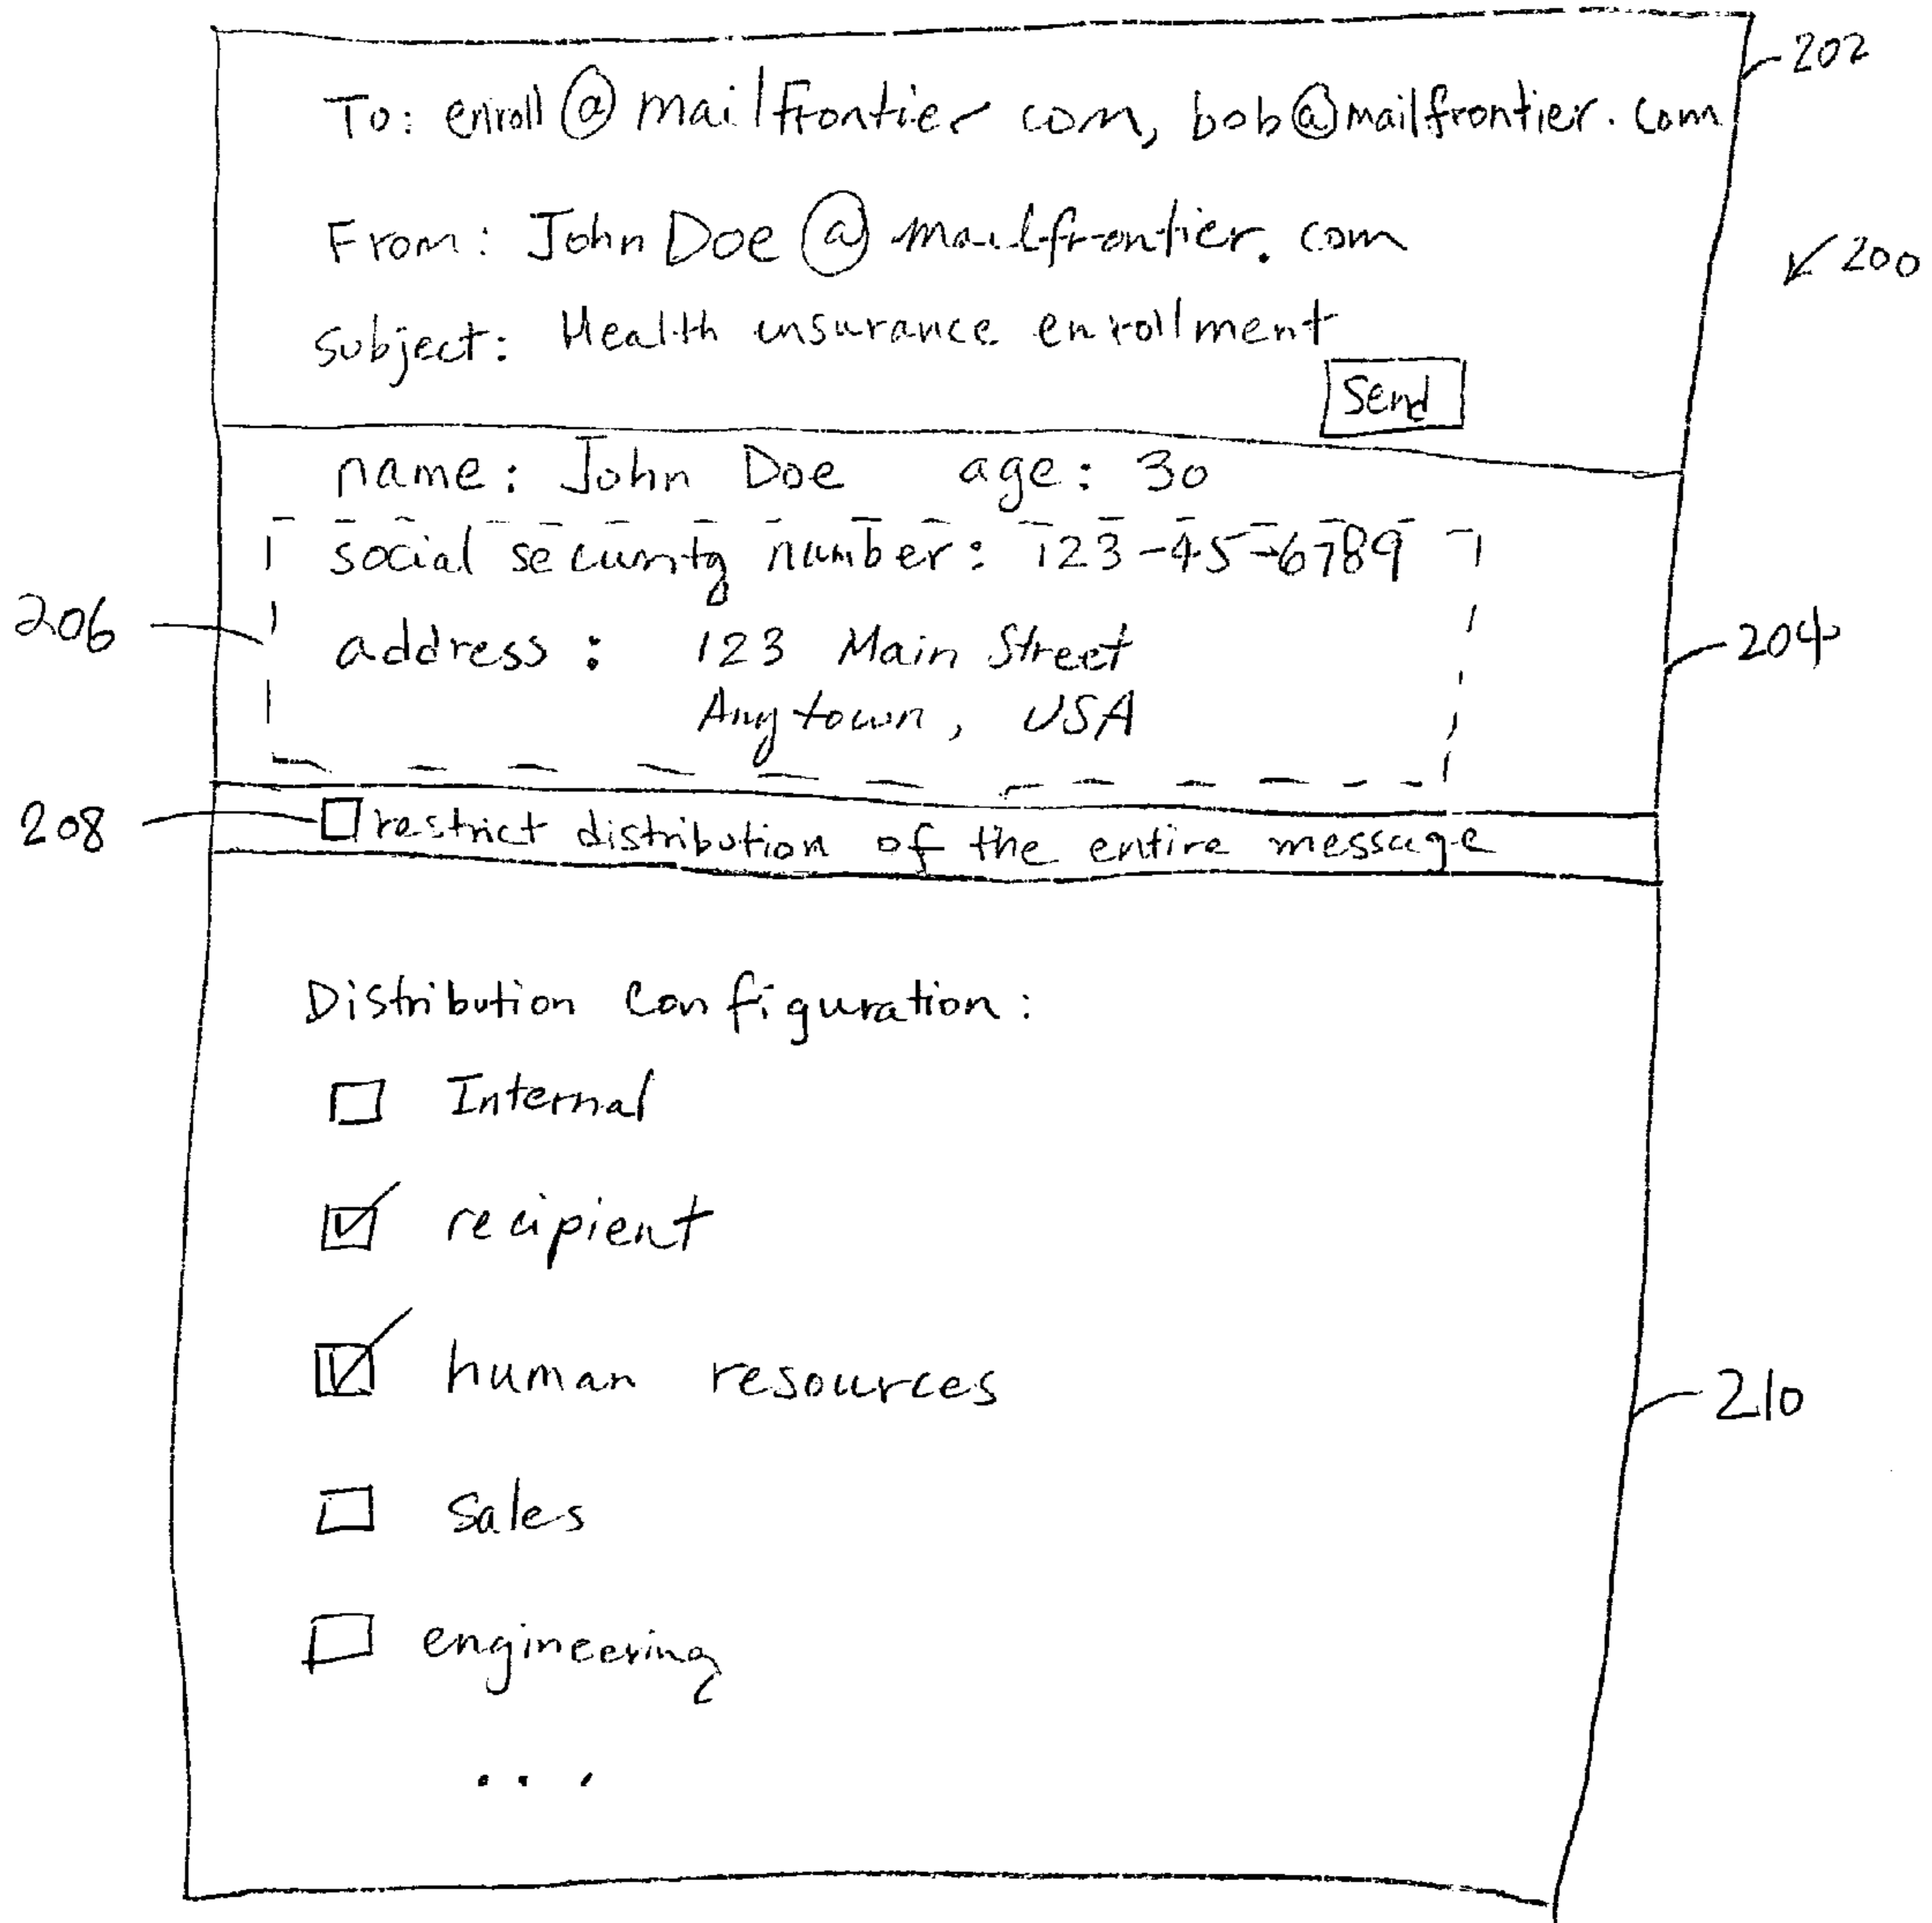 202
To: enroll@mailfrontier com, bob@mailfrontier.com
From: John Doe@mailfrontier.com
200
Subject: Health insurance enrollment
Send
name: John Doe age: 30
social security number: 123-45-6789
206
address: 123 Main Street
204
Anytown, USA
208
restrict distribution of the entire message
Distribution Configuration:
Internal
recipient
human resources
210
Sales
engineering
...